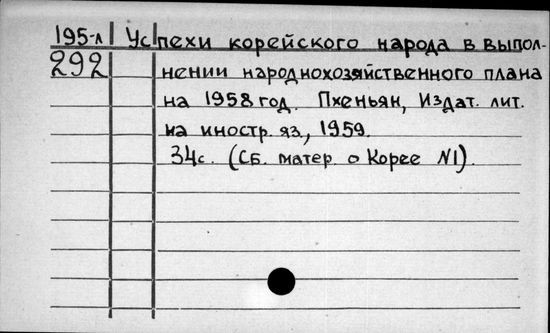 195-л Успехи корейского народа в выпол-
292 нении народнохозяйственного плана
на 1958 год. Пхеньян, Издат. лит.
на иностр. яз., 1959.
34с. (Сб. матер. о Корее N1).